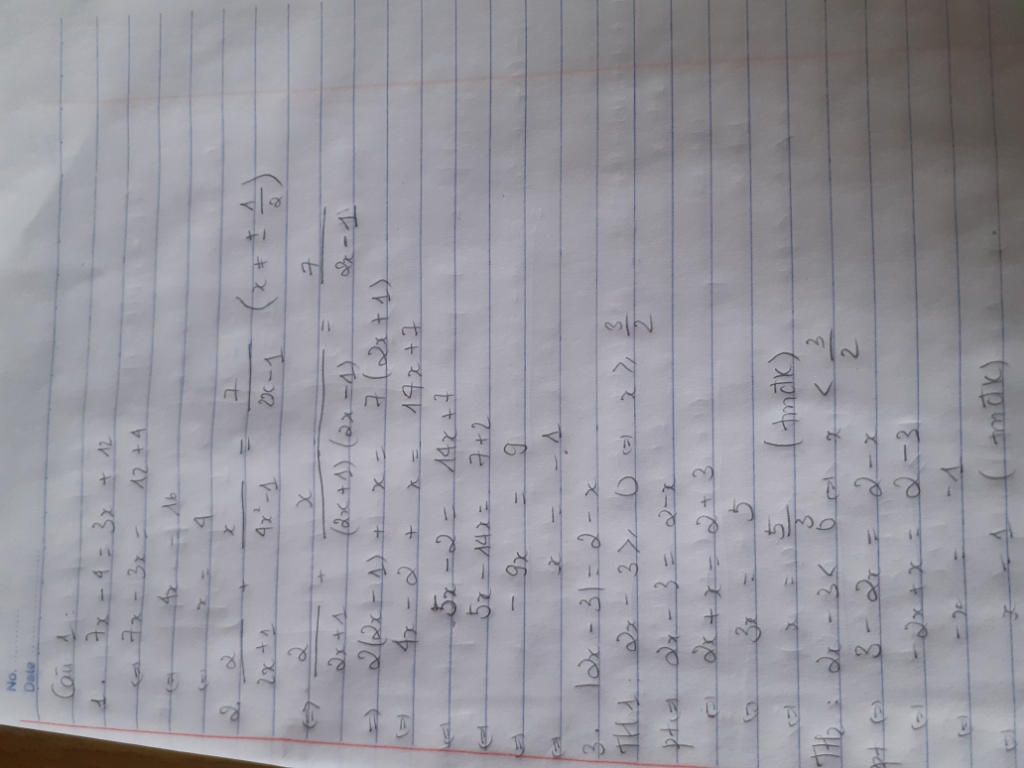 No.
Date
Câu 1:
1. 7x - 4 = 3x + 12
(=) 7x - 3x = 12 + 4
(=) 4x = 16
(=) x = 4
2 2/(2x+1) + x/(4x²-1) = 7/(2x-1) (x ≠ ± 1/2)
(=) 2/(2x+1) + x/((2x+1)(2x-1)) = 7/(2x-1)
=) 2(2x-1) + x = 7(2x+1)
(=) 4x - 2 + x = 14x + 7
(=) 5x - 2 = 14x + 7
(=) 5x - 14x = 7 + 2
(=) - 9x = 9
(=) x = -1
3. |2x - 3| = 2 - x
TH1: 2x - 3 ⩾ 0 (=) x ⩾ 3/2
pt (=) 2x - 3 = 2 - x
(=) 2x + x = 2 + 3
(=) 3x = 5
(=) x = 5/3 (tmđk)
2x - 3 < 0 (=) x < 3/2
pt (=) 3 - 2x = 2 - x
(=) -2x + x = 2 - 3
(=) -x = -1
(=) x = 1 (tmđk)